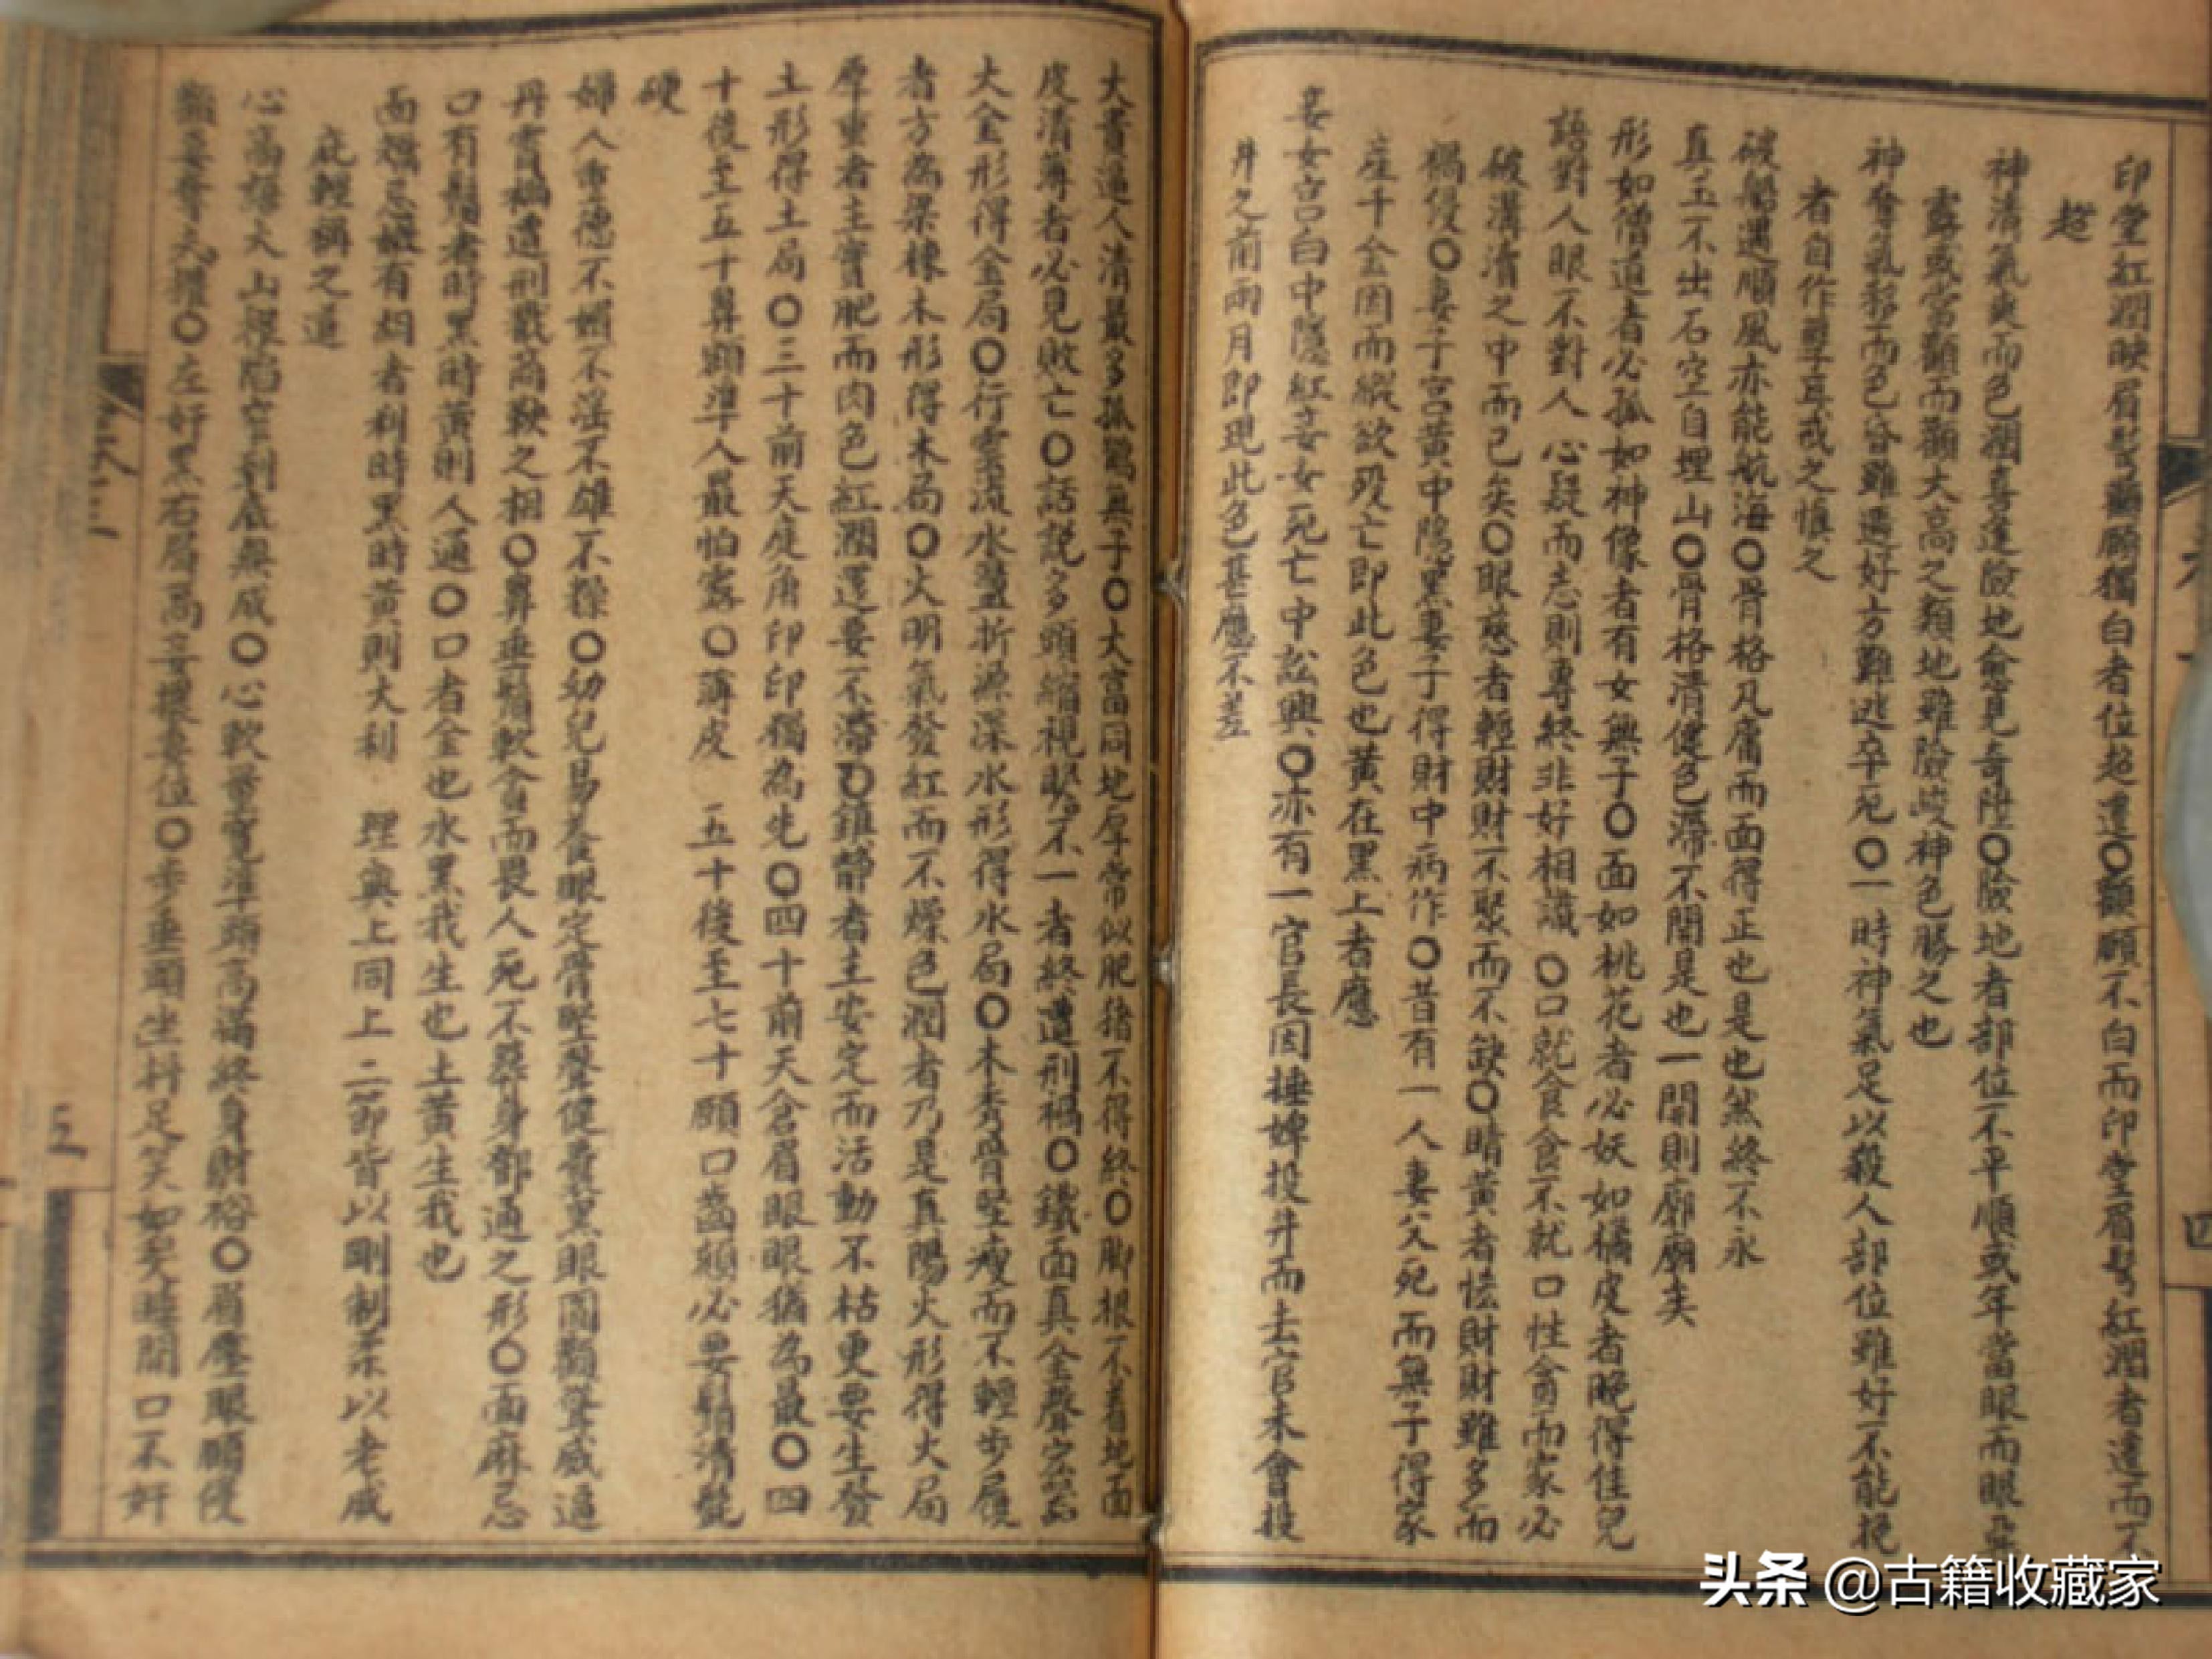 印堂紅潤映眉髮顴頤獨白者位超遷〇顴頤不白而印堂眉髮紅潤者達而不
超
神清氣爽而色潤喜逢險地愈見奇陞〇險地者部位不平順或年當眼而眼
露或當顴而顴大高之類地雖險峻神色勝之也
神奪氣移而色昏雖遇好方難逃卒死〇一時神氣足以殺人部位雖好不能挽
者自作孽耳戒之慎之
破船遇順風亦能航海〇骨格凡庸而面得正也是也然終不永
真玉不出石空自埋山〇骨格清健色滯不開是也一開則廊廟矣
形如僧道者必孤如神像者有女無子〇面如桃花者必妖如橘皮者晚得佳兒
語對人眼不對人心疑而志則專終非好相識〇口就食食不就口性貪而家必
破溝瀆之中而已矣〇眼慈者輕財財不聚而不缺〇睛黃者怪財財雖多而
禍侵〇妻子宮黃中隱黑妻子得財中病作〇昔有一人妻父死而無子得家
產千金因而縱欲歿亡即此色也黃在黑上者應
妾女宮白中隱紅妾女死亡中訟興〇亦有一官長因捶婢投井而去官未會投
井之前兩月即現此色甚應不差
大貴逼人清最多孤鶴無子〇大富同地厚常似肥豬不得終〇脚根不着地面
皮清薄者必見敗亡〇話說多頭縮視不一者終遭刑禍〇鐵面真金聲
大金形得金局〇行雲流水藍折源深水形得水局〇木秀骨堅瘦而不輕步履
者方為梁棟木形得木局〇火明氣發紅而不燥色潤者乃是真陽火形得火局
厚重者主實肥而肉色紅潤運要不滯雖靜者主安定而活動不枯更要生發
土形得土局〇三十前天庭角印印獨為先〇四十前天倉眉眼眼猶為最〇四
十後至五十鼻顴準人最怕露〇薄皮 五十後至七十頤口齒頦必要鬚清髭
硬
婦人重德不媚不淫不雄不操〇幼兒易養眼定骨堅聲健囊黑眼圓顴聳威逼
丹霄禍遭刑戮商鞅之相〇鼻垂鬚軟貪而畏人死不葬身鄧通之形〇面麻忌
口有鬚者時黑時黃則人通〇口者金也水黑我生也土黃生我也
面忌有者利時黑時黃則大利 理與上同上二節皆以剛制柔以老威
庇輕稱之道
心高語大山根陷空到底無成〇心軟量寬準頭高滿終身財裕〇眉壓眼顴侵
妻奪夫權〇左奸黑右眉高妾攘妻位〇步垂頭坐抖足笑如哭睡開口不奸
卷三
五
四
头条 @古籍收藏家